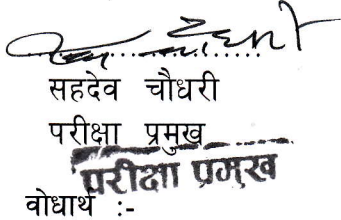 सहदेव चौधरी
परीक्षा प्रमुख
परीक्षा प्रमुख
वोधार्थ :-